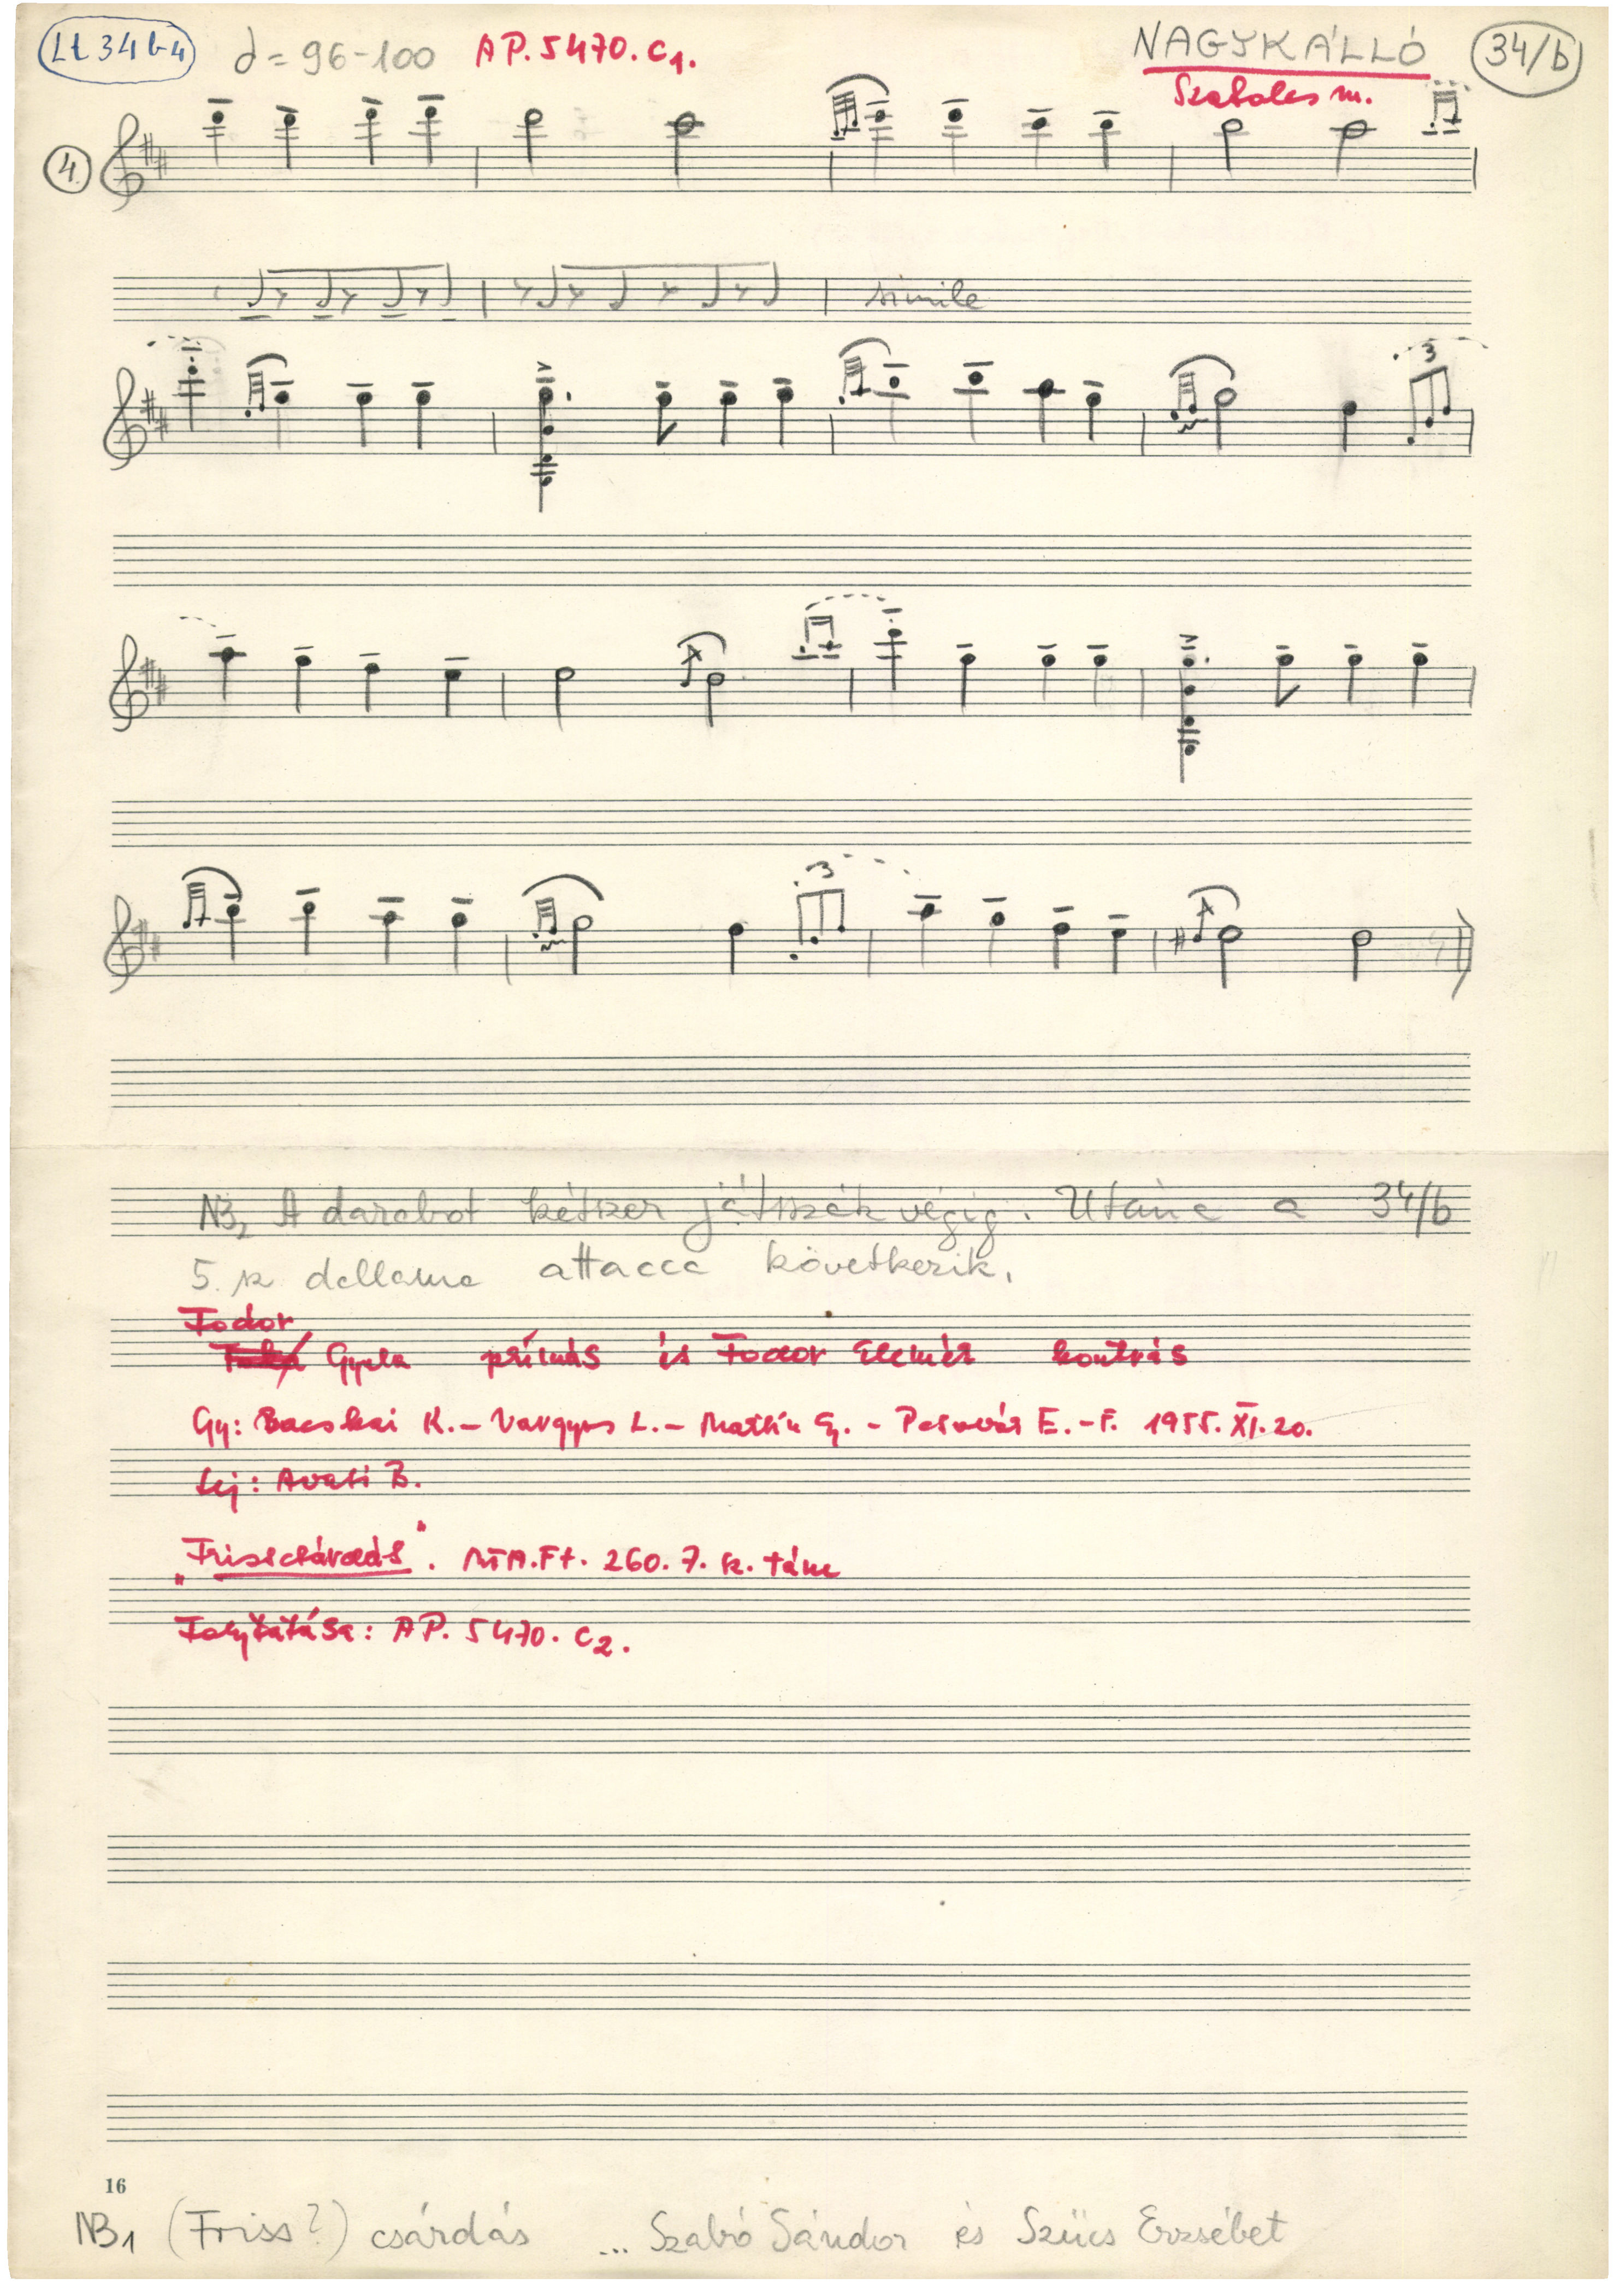 Lt 34b-4 𝅗𝅥 = 96-100 AP. 5470. C1. NAGYKÁLLÓ 34/b
Szabolcs m.
4.
simile
3
3
NB2 A darabot kétszer játsszák végig. Utána a 34/b
5. sz dallama attacca következik.
Fodor
Gyula prímás és Fodor Elemér kontrás
Gy: Bacskai K. – Vargyas L. – Martin Gy. – Pesovár E. – F. 1955. XI. 20.
Lej: Avasi B.
"Frisscsárdás". MTA. Ft. 260. 7. sz. tánc
Folytatása: AP. 5470. C2.
16
NB1 (Friss?) csárdás ... Szabó Sándor és Szűcs Erzsébet